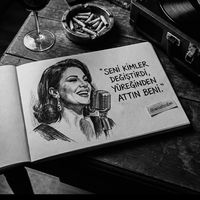 "SENİ KİMLER
DEĞİŞTİRDİ,
YÜREĞİNDEN
ATTIN BENİ."